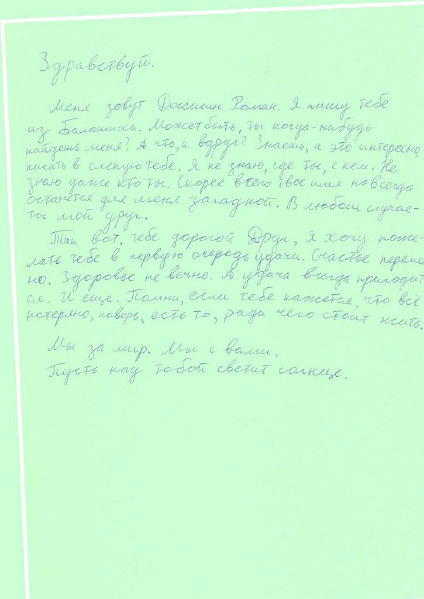 Здравствуй.
Меня зовут Роман. Я пишу тебе
из Балашихи. Может быть, ты когда-нибудь
найдешь меня? А что, а вдруг? Знаешь, а это интересно,
писать в слепую тебе. Я не знаю, где ты, с кем. Не
знаю даже кто ты. Скорее всего твое имя навсегда
останется для меня загадкой. В любом случае-
ты мой друг.
Так вот, тебе дорогой Друг, я хочу поже-
лать тебе в первую очередь удачи. Счастье
но. Здоровье не вечно. А удача всегда пригодит
ся. И еще. Помни, если тебе кажется, что всё
потеряно, поверь, есть то, ради чего стоит жить.
Мы за мир. Мы с вами.
Пусть над тобой светит солнце.